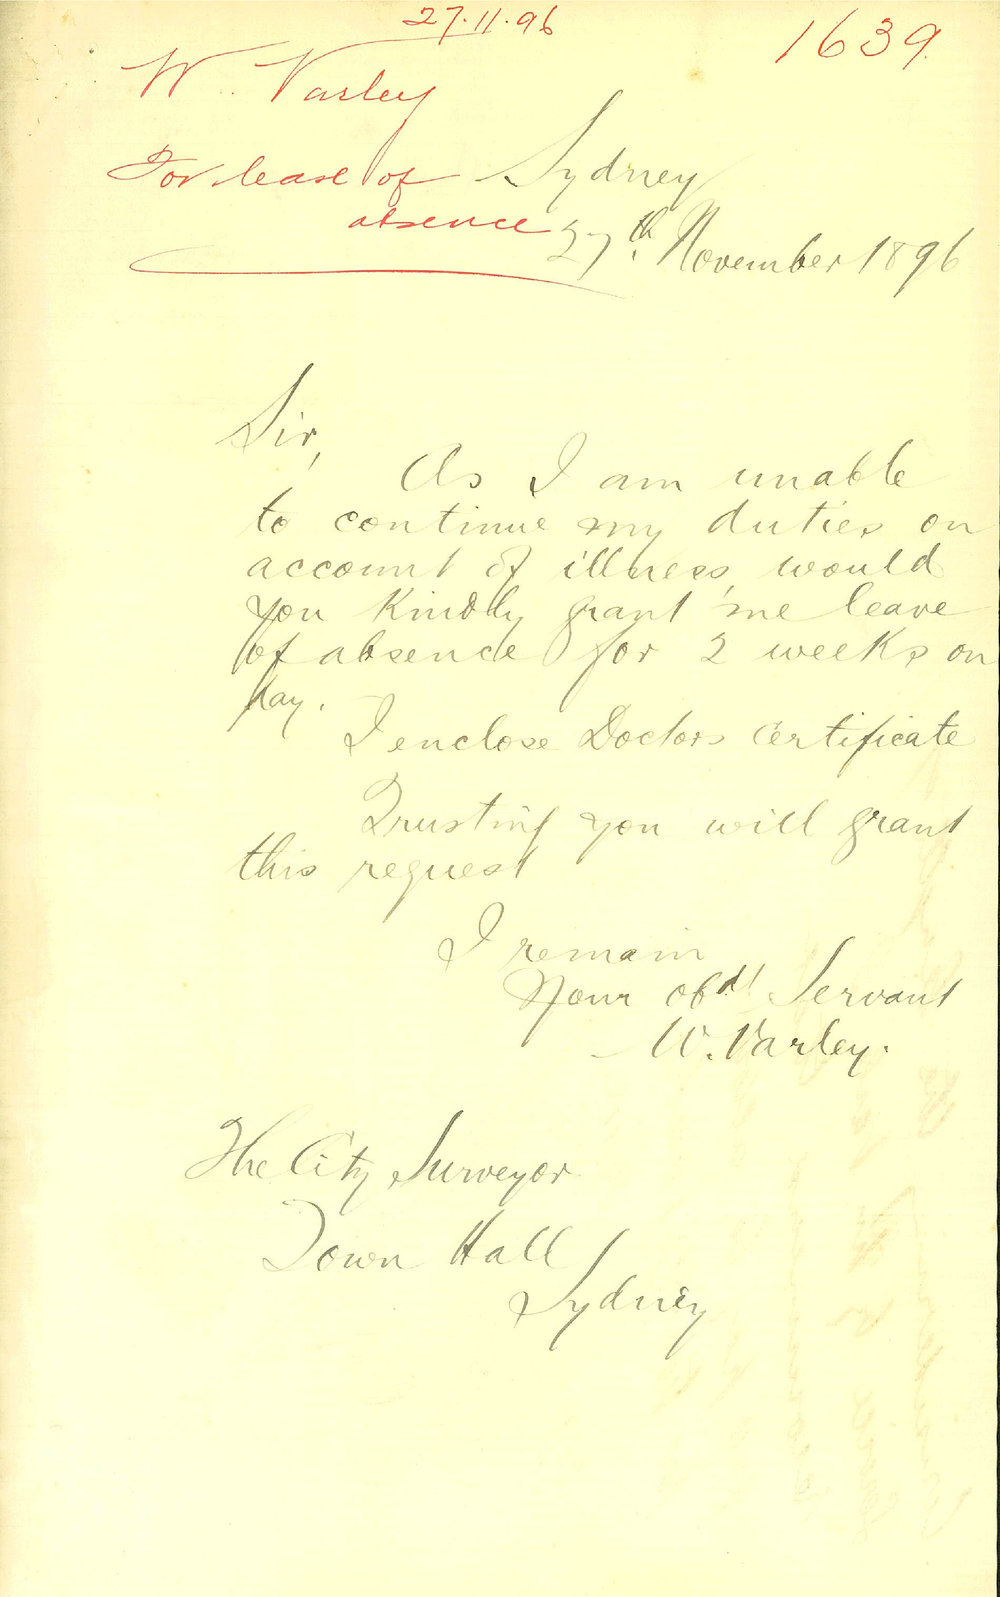 27.11.96
1639.
W. Varley
For leave of
absence
Sydney
27th. November 1896
Sir,
As I am unable
to continue my duties on
account of illness, would
you kindly grant me leave
of absence for 2 weeks on
pay.
I enclose Doctors Certificate
Trusting you will grant
this request
I remain
Your obdt Servant
W. Varley.
The City Surveyor
Town Hall
Sydney